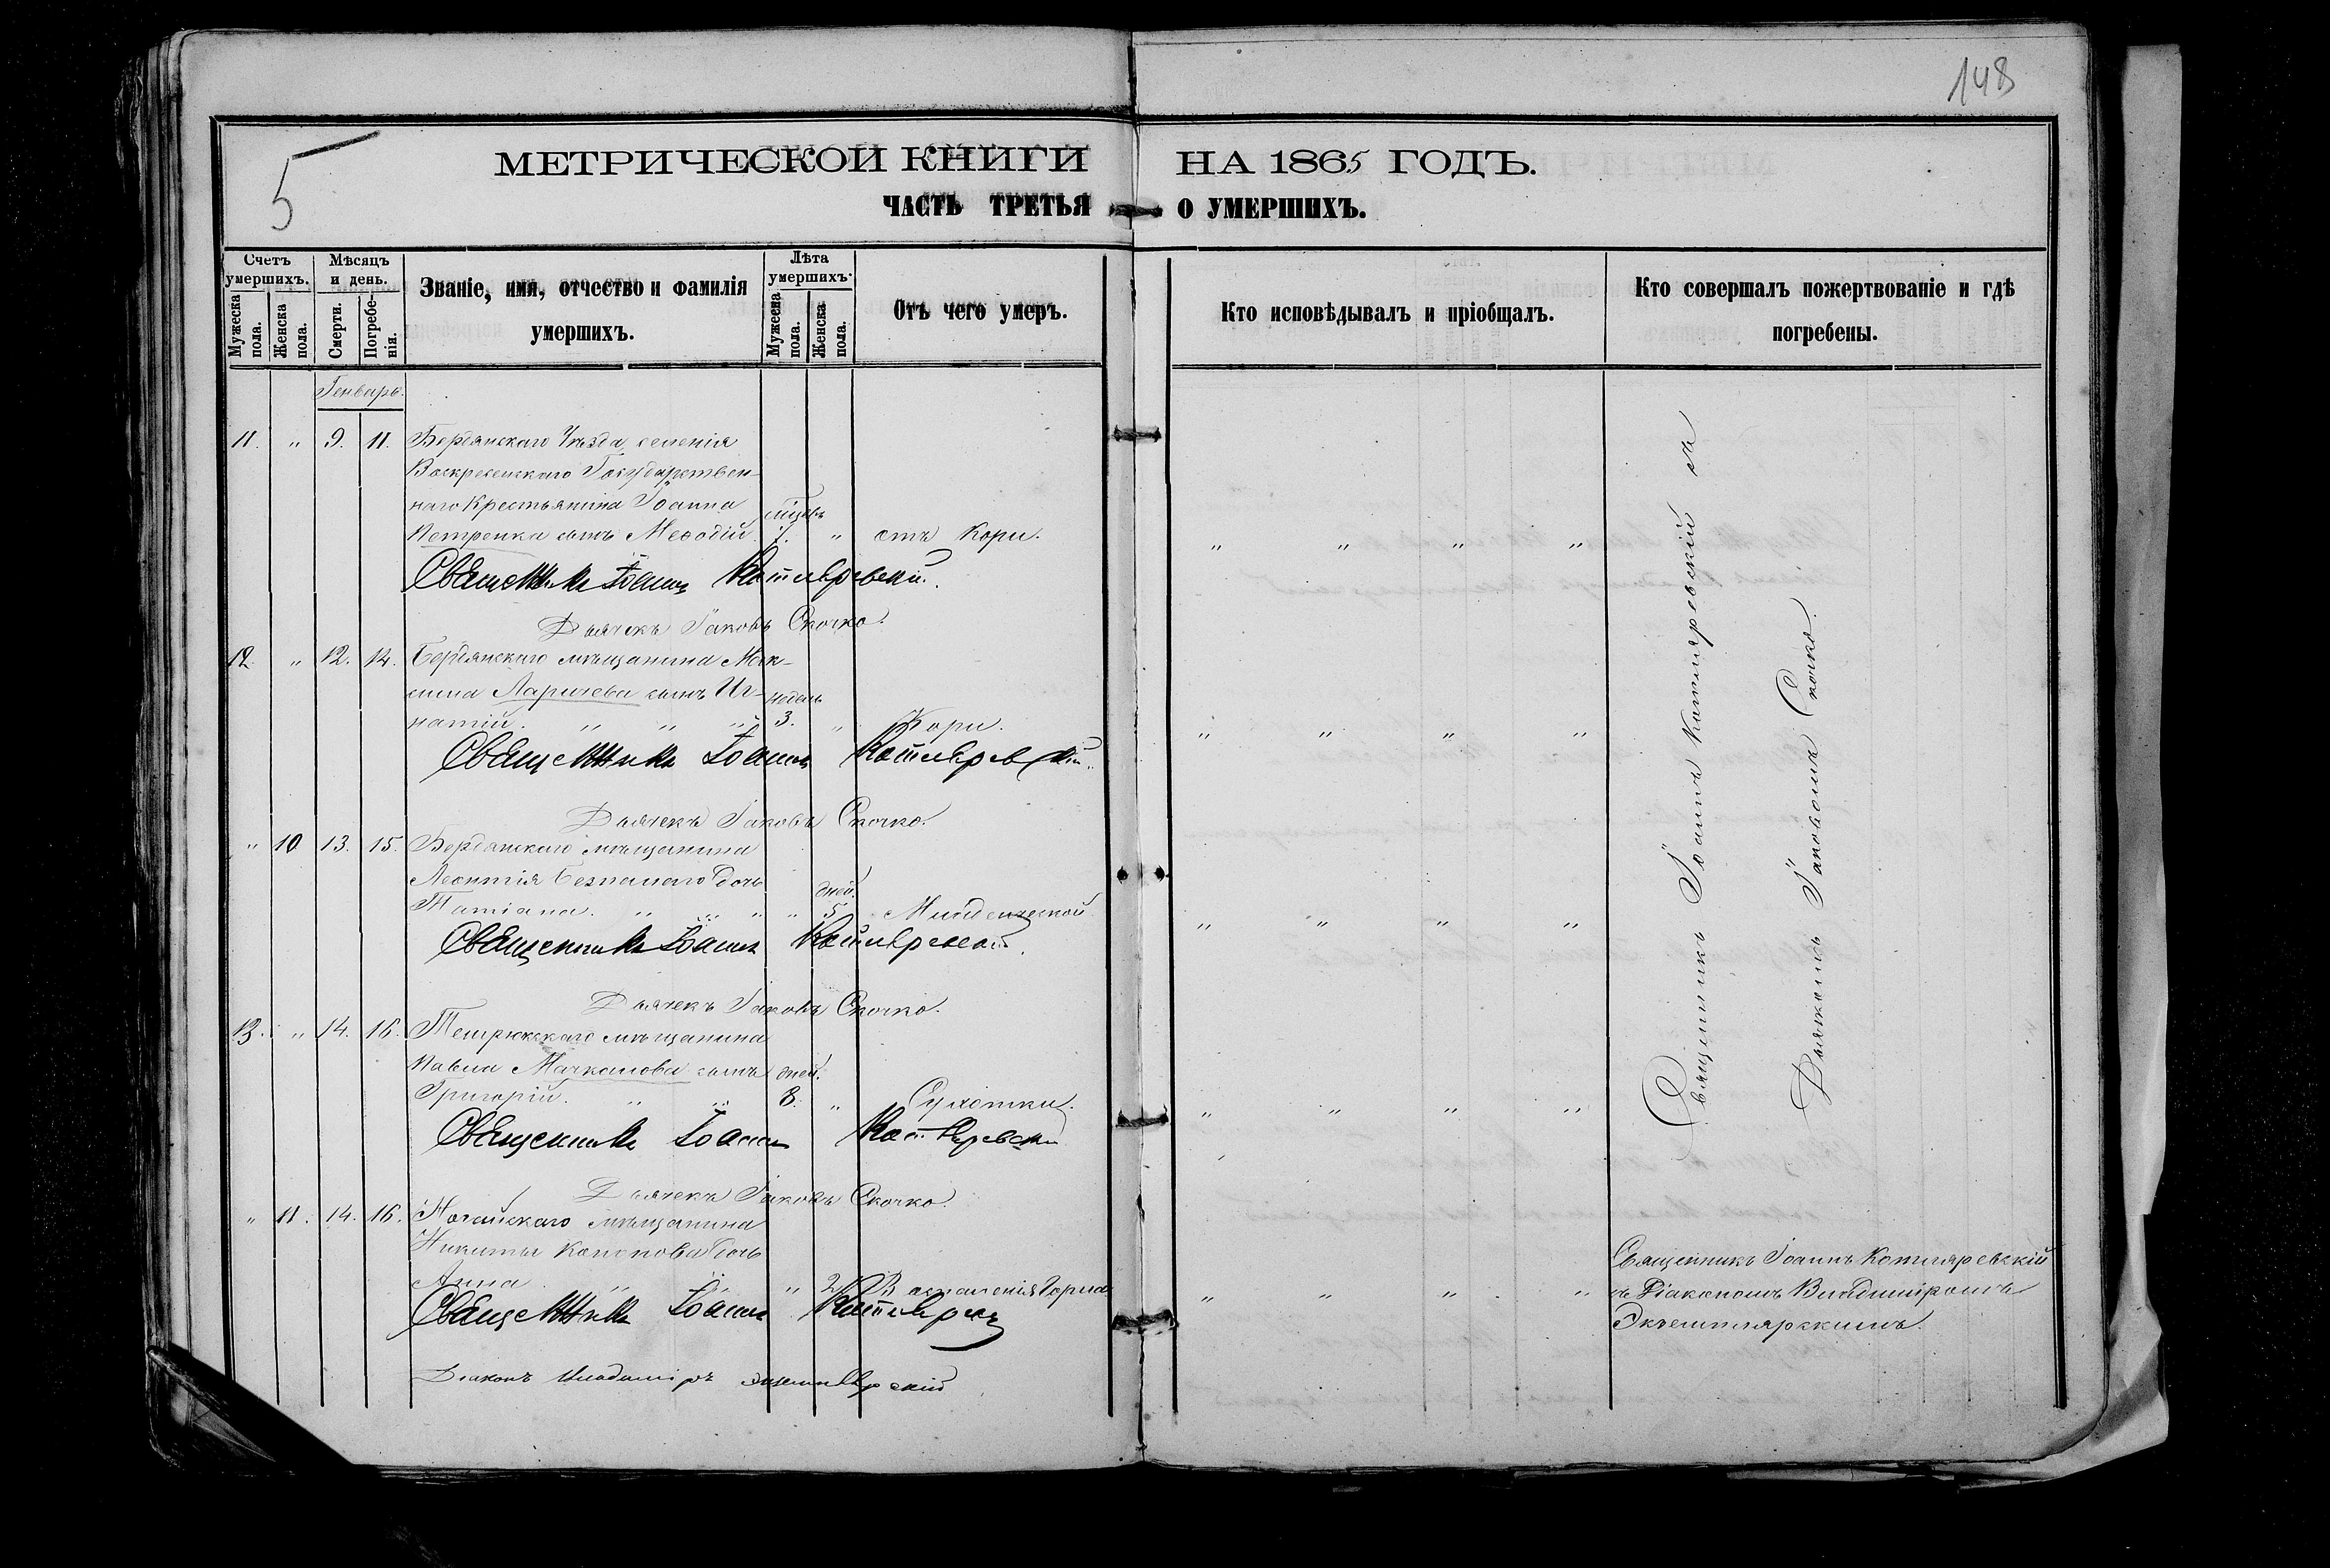 148
5
МЕТРИЧЕСКОЙ КНИГИ НА 1865 ГОДЪ.
ЧАСТЬ ТРЕТЬЯ О УМЕРШИХЪ.
Счетъ умершихъ.
Мужеска пола.
Женска пола.
Мѣсяцъ и день.
Смерти.
Погребенія.
Званіе, имя, отчество и фамилія умершихъ.
Лѣта умершихъ.
Мужеска пола.
Женска пола.
Отъ чего умеръ.
Кто исповѣдывалъ и пріобщалъ.
Кто совершалъ пожертвованіе и гдѣ погребены.
Генварь.
11. " 9. 11. Бердянскаго Уѣзда селенія
Воскресенскаго Государствен-
наго Крестьянина Іоанна
Петренка сынъ Меѳодій. " отъ Кори. " " " "
Священникъ Іоаннъ Котляревскій.
Дьячекъ Іаковъ Скочко.
12. " 12. 14. Бердянскаго мѣщанина Мак-
сима Ларичева сынъ Иг- недель
натій. " " " 3. " Кори. " " " "
Священникъ Іоаннъ Котляревскій.
Дьячекъ Іаковъ Скочко.
" 10 13. 15. Бердянскаго мѣщанина
Леонтія Безпалаго дочь дней.
Татіана. " " " " 5. Младенческой " " " "
Священникъ Іоаннъ Котляревскій.
Дьячекъ Іаковъ Скочко.
13. " 14. 16. Темрюкскаго мѣщанина
Павла Мачканова сынъ дней.
Григорій. " " 8. " Сухотки. " " " "
Священникъ Іоаннъ Котляревскій
Дьячекъ Іаковъ Скочко.
" 11. 14. 16. Ногайскаго мѣщанина
Никиты Кононова дочь
Анна " " " Воспаленія Горла " " " "
Священникъ Іоаннъ Котляревскій
Діаконъ Владиміръ Экземплярскій
Священникъ Іоаннъ Котляревскій съ
Дьячкомъ Іаковомъ Скочко.
Священникъ Іоаннъ Котляревскій
съ Діакономъ Владиміромъ
Экземплярскимъ.